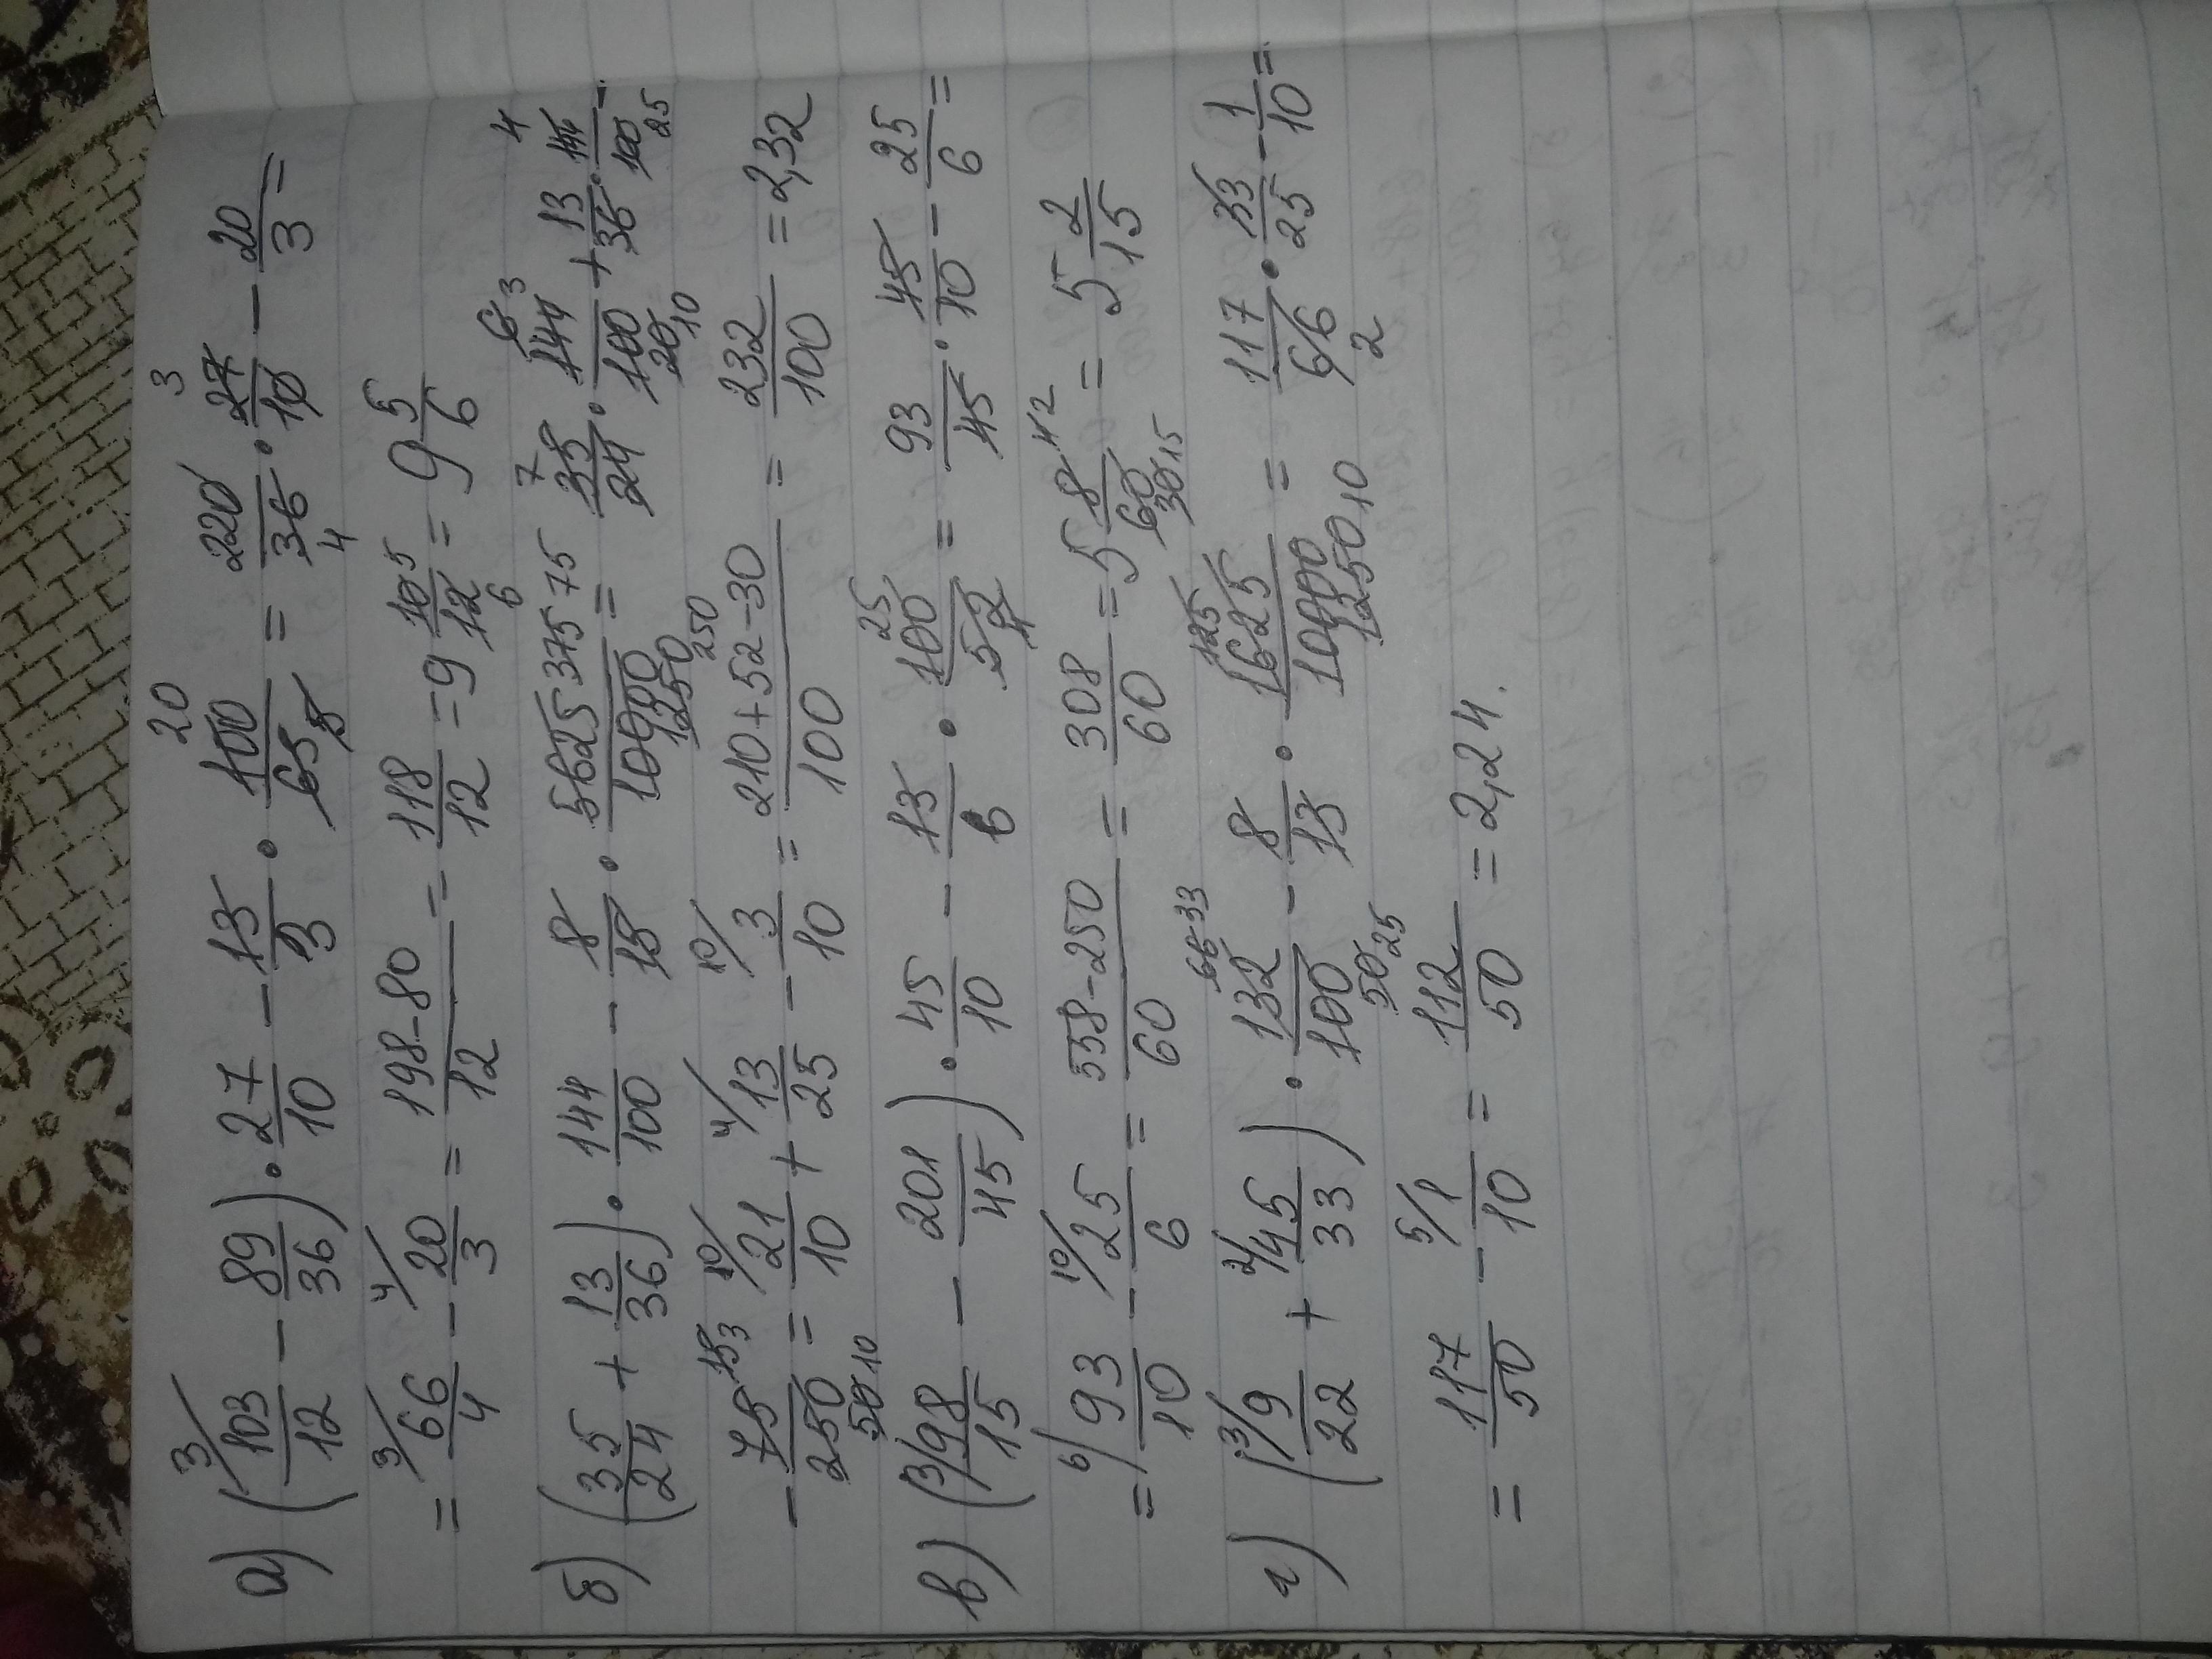 а) (³⁄103/12 − 89/36) · 27/10 − 13/3 · 100/65 = 220/36 · 27/10 − 20/3 =
= ³⁄66/4 − ⁴⁄20/3 = 198−80/12 = 118/12 = 9 10/12 = 9 5/6
б) (35/24 + 13/36) · 144/100 − 8/15 · 5625/10000 = 35/24 · 144/100 + 13/36 · 144/100 −
− 75/250 = ¹⁰⁄21/10 + ⁴⁄13/25 − ¹⁰⁄3/10 = 210+52−30/100 = 232/100 = 2,32
в) (³⁄98/15 − 201/45) · 45/10 − 13/6 · 100/52 = 93/45 · 45/10 − 25/6 =
= ⁶⁄93/10 − ¹⁰⁄25/6 = 558−250/60 = 308/60 = 5 8/60 = 5 2/15
г) (³⁄9/22 + ²⁄45/33) · 132/100 − 8/13 · 1625/10000 = 117/66 · 33/25 − 1/10 =
= 117/50 − ⁵⁄1/10 = 112/50 = 2,24.